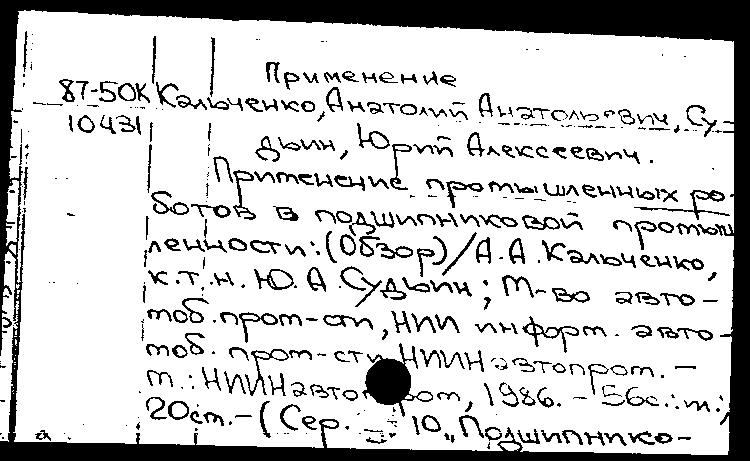 Применение
87-50К Кальченко, Анатолий Анатольевич, Су-
10431 дьин, Юрий Алексеевич.
Применение промышленных ро-
ботов в подшипниковой промыш
ленности: (Обзор) / А.А. Кальченко,
к.т.н. Ю.А. Судьин; М-во авто-
моб. пром-сти, НИИ информ. авто-
моб. пром-сти НИИНавтопром. –
М.: НИИНавтопром, 1986. – 56с.: ил.;
20см. – (Сер. 10 „Подшипнико-